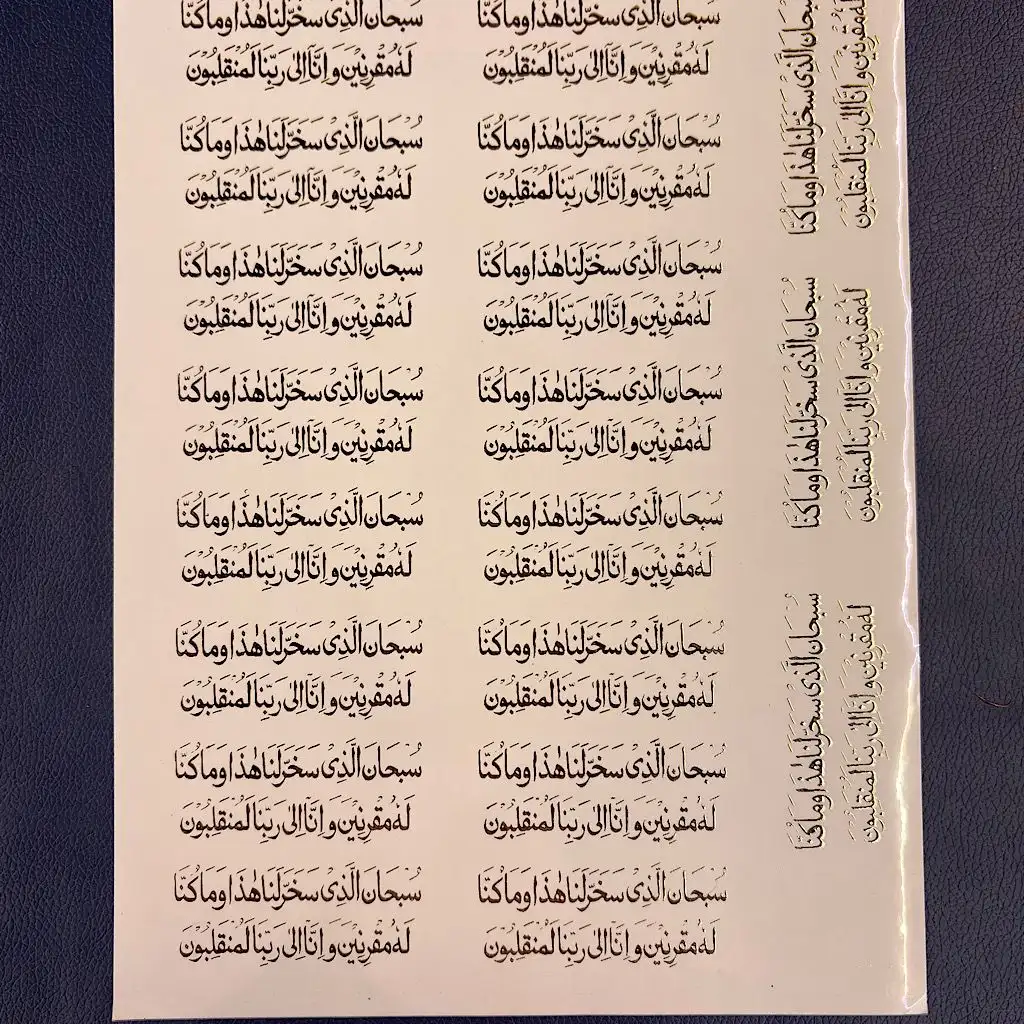 سُبْحَانَ الَّذِىْ سَخَّرَلَنَا هٰذَا وَمَا كُنَّا
لَهٗ مُقْرِنِيْنَ وَ اِنَّا اِلٰى رَبِّنَا لَمُنْقَلِبُوْنَ
سُبْحَانَ الَّذِىْ سَخَّرَلَنَا هٰذَا وَمَا كُنَّا
لَهٗ مُقْرِنِيْنَ وَ اِنَّا اِلٰى رَبِّنَا لَمُنْقَلِبُوْنَ
سُبْحَانَ الَّذِىْ سَخَّرَلَنَا هٰذَا وَمَا كُنَّا
لَهٗ مُقْرِنِيْنَ وَ اِنَّا اِلٰى رَبِّنَا لَمُنْقَلِبُوْنَ
سُبْحَانَ الَّذِىْ سَخَّرَلَنَا هٰذَا وَمَا كُنَّا
لَهٗ مُقْرِنِيْنَ وَ اِنَّا اِلٰى رَبِّنَا لَمُنْقَلِبُوْنَ
سُبْحَانَ الَّذِىْ سَخَّرَلَنَا هٰذَا وَمَا كُنَّا
لَهٗ مُقْرِنِيْنَ وَ اِنَّا اِلٰى رَبِّنَا لَمُنْقَلِبُوْنَ
سُبْحَانَ الَّذِىْ سَخَّرَلَنَا هٰذَا وَمَا كُنَّا
لَهٗ مُقْرِنِيْنَ وَ اِنَّا اِلٰى رَبِّنَا لَمُنْقَلِبُوْنَ
سُبْحَانَ الَّذِىْ سَخَّرَلَنَا هٰذَا وَمَا كُنَّا
لَهٗ مُقْرِنِيْنَ وَ اِنَّا اِلٰى رَبِّنَا لَمُنْقَلِبُوْنَ
سُبْحَانَ الَّذِىْ سَخَّرَلَنَا هٰذَا وَمَا كُنَّا
لَهٗ مُقْرِنِيْنَ وَ اِنَّا اِلٰى رَبِّنَا لَمُنْقَلِبُوْنَ
سُبْحَانَ الَّذِىْ سَخَّرَلَنَا هٰذَا وَمَا كُنَّا
لَهٗ مُقْرِنِيْنَ وَ اِنَّا اِلٰى رَبِّنَا لَمُنْقَلِبُوْنَ
سُبْحَانَ الَّذِىْ سَخَّرَلَنَا هٰذَا وَمَا كُنَّا
لَهٗ مُقْرِنِيْنَ وَ اِنَّا اِلٰى رَبِّنَا لَمُنْقَلِبُوْنَ
سُبْحَانَ الَّذِىْ سَخَّرَلَنَا هٰذَا وَمَا كُنَّا
لَهٗ مُقْرِنِيْنَ وَ اِنَّا اِلٰى رَبِّنَا لَمُنْقَلِبُوْنَ
سُبْحَانَ الَّذِىْ سَخَّرَلَنَا هٰذَا وَمَا كُنَّا
لَهٗ مُقْرِنِيْنَ وَ اِنَّا اِلٰى رَبِّنَا لَمُنْقَلِبُوْنَ
سُبْحَانَ الَّذِىْ سَخَّرَلَنَا هٰذَا وَمَا كُنَّا
لَهٗ مُقْرِنِيْنَ وَ اِنَّا اِلٰى رَبِّنَا لَمُنْقَلِبُوْنَ
سُبْحَانَ الَّذِىْ سَخَّرَلَنَا هٰذَا وَمَا كُنَّا
لَهٗ مُقْرِنِيْنَ وَ اِنَّا اِلٰى رَبِّنَا لَمُنْقَلِبُوْنَ
سُبْحَانَ الَّذِىْ سَخَّرَلَنَا هٰذَا وَمَا كُنَّا
لَهٗ مُقْرِنِيْنَ وَ اِنَّا اِلٰى رَبِّنَا لَمُنْقَلِبُوْنَ
سُبْحَانَ الَّذِىْ سَخَّرَلَنَا هٰذَا وَمَا كُنَّا
لَهٗ مُقْرِنِيْنَ وَ اِنَّا اِلٰى رَبِّنَا لَمُنْقَلِبُوْنَ
سُبْحَانَ الَّذِىْ سَخَّرَلَنَا هٰذَا وَمَا كُنَّا
لَهٗ مُقْرِنِيْنَ وَ اِنَّا اِلٰى رَبِّنَا لَمُنْقَلِبُوْنَ
سُبْحَانَ الَّذِىْ سَخَّرَلَنَا هٰذَا وَمَا كُنَّا
لَهٗ مُقْرِنِيْنَ وَ اِنَّا اِلٰى رَبِّنَا لَمُنْقَلِبُوْنَ
سُبْحَانَ الَّذِىْ سَخَّرَلَنَا هٰذَا وَمَا كُنَّا
لَهٗ مُقْرِنِيْنَ وَ اِنَّا اِلٰى رَبِّنَا لَمُنْقَلِبُوْنَ